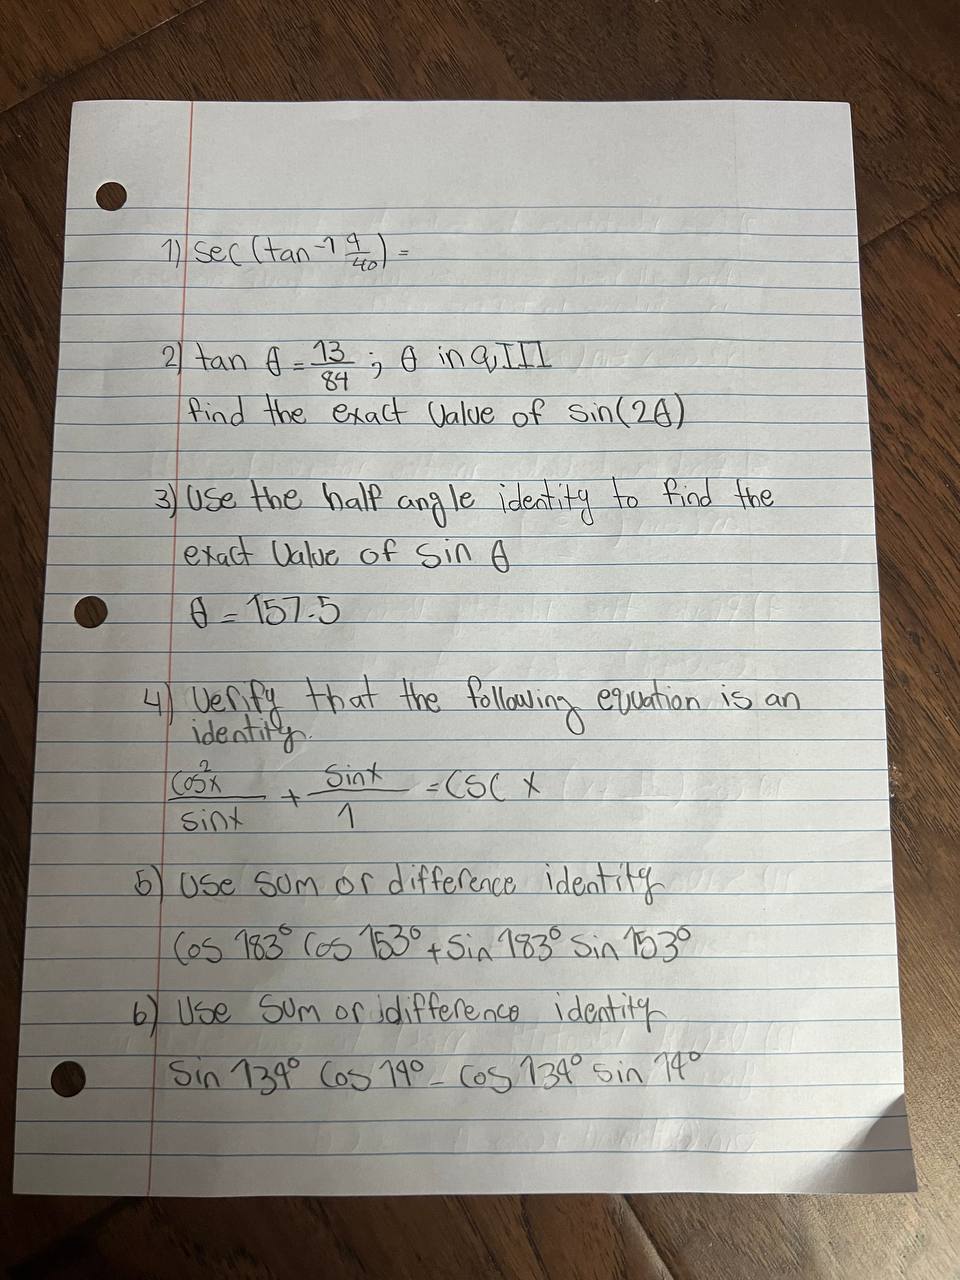 1) sec (tan⁻¹ 9/40) =
2) tan θ = 13/84 ; θ in q III
find the exact value of sin(2θ)
3) Use the half angle identity to find the
exact value of sin θ
θ = 157.5
4) Verify that the following equation is an
identity.
cos²x/sinx + sinx/1 = csc x
5) Use sum or difference identity
cos 183° cos 153° + sin 183° sin 153°
6) Use sum or difference identity
sin 134° cos 14° - cos 134° sin 14°